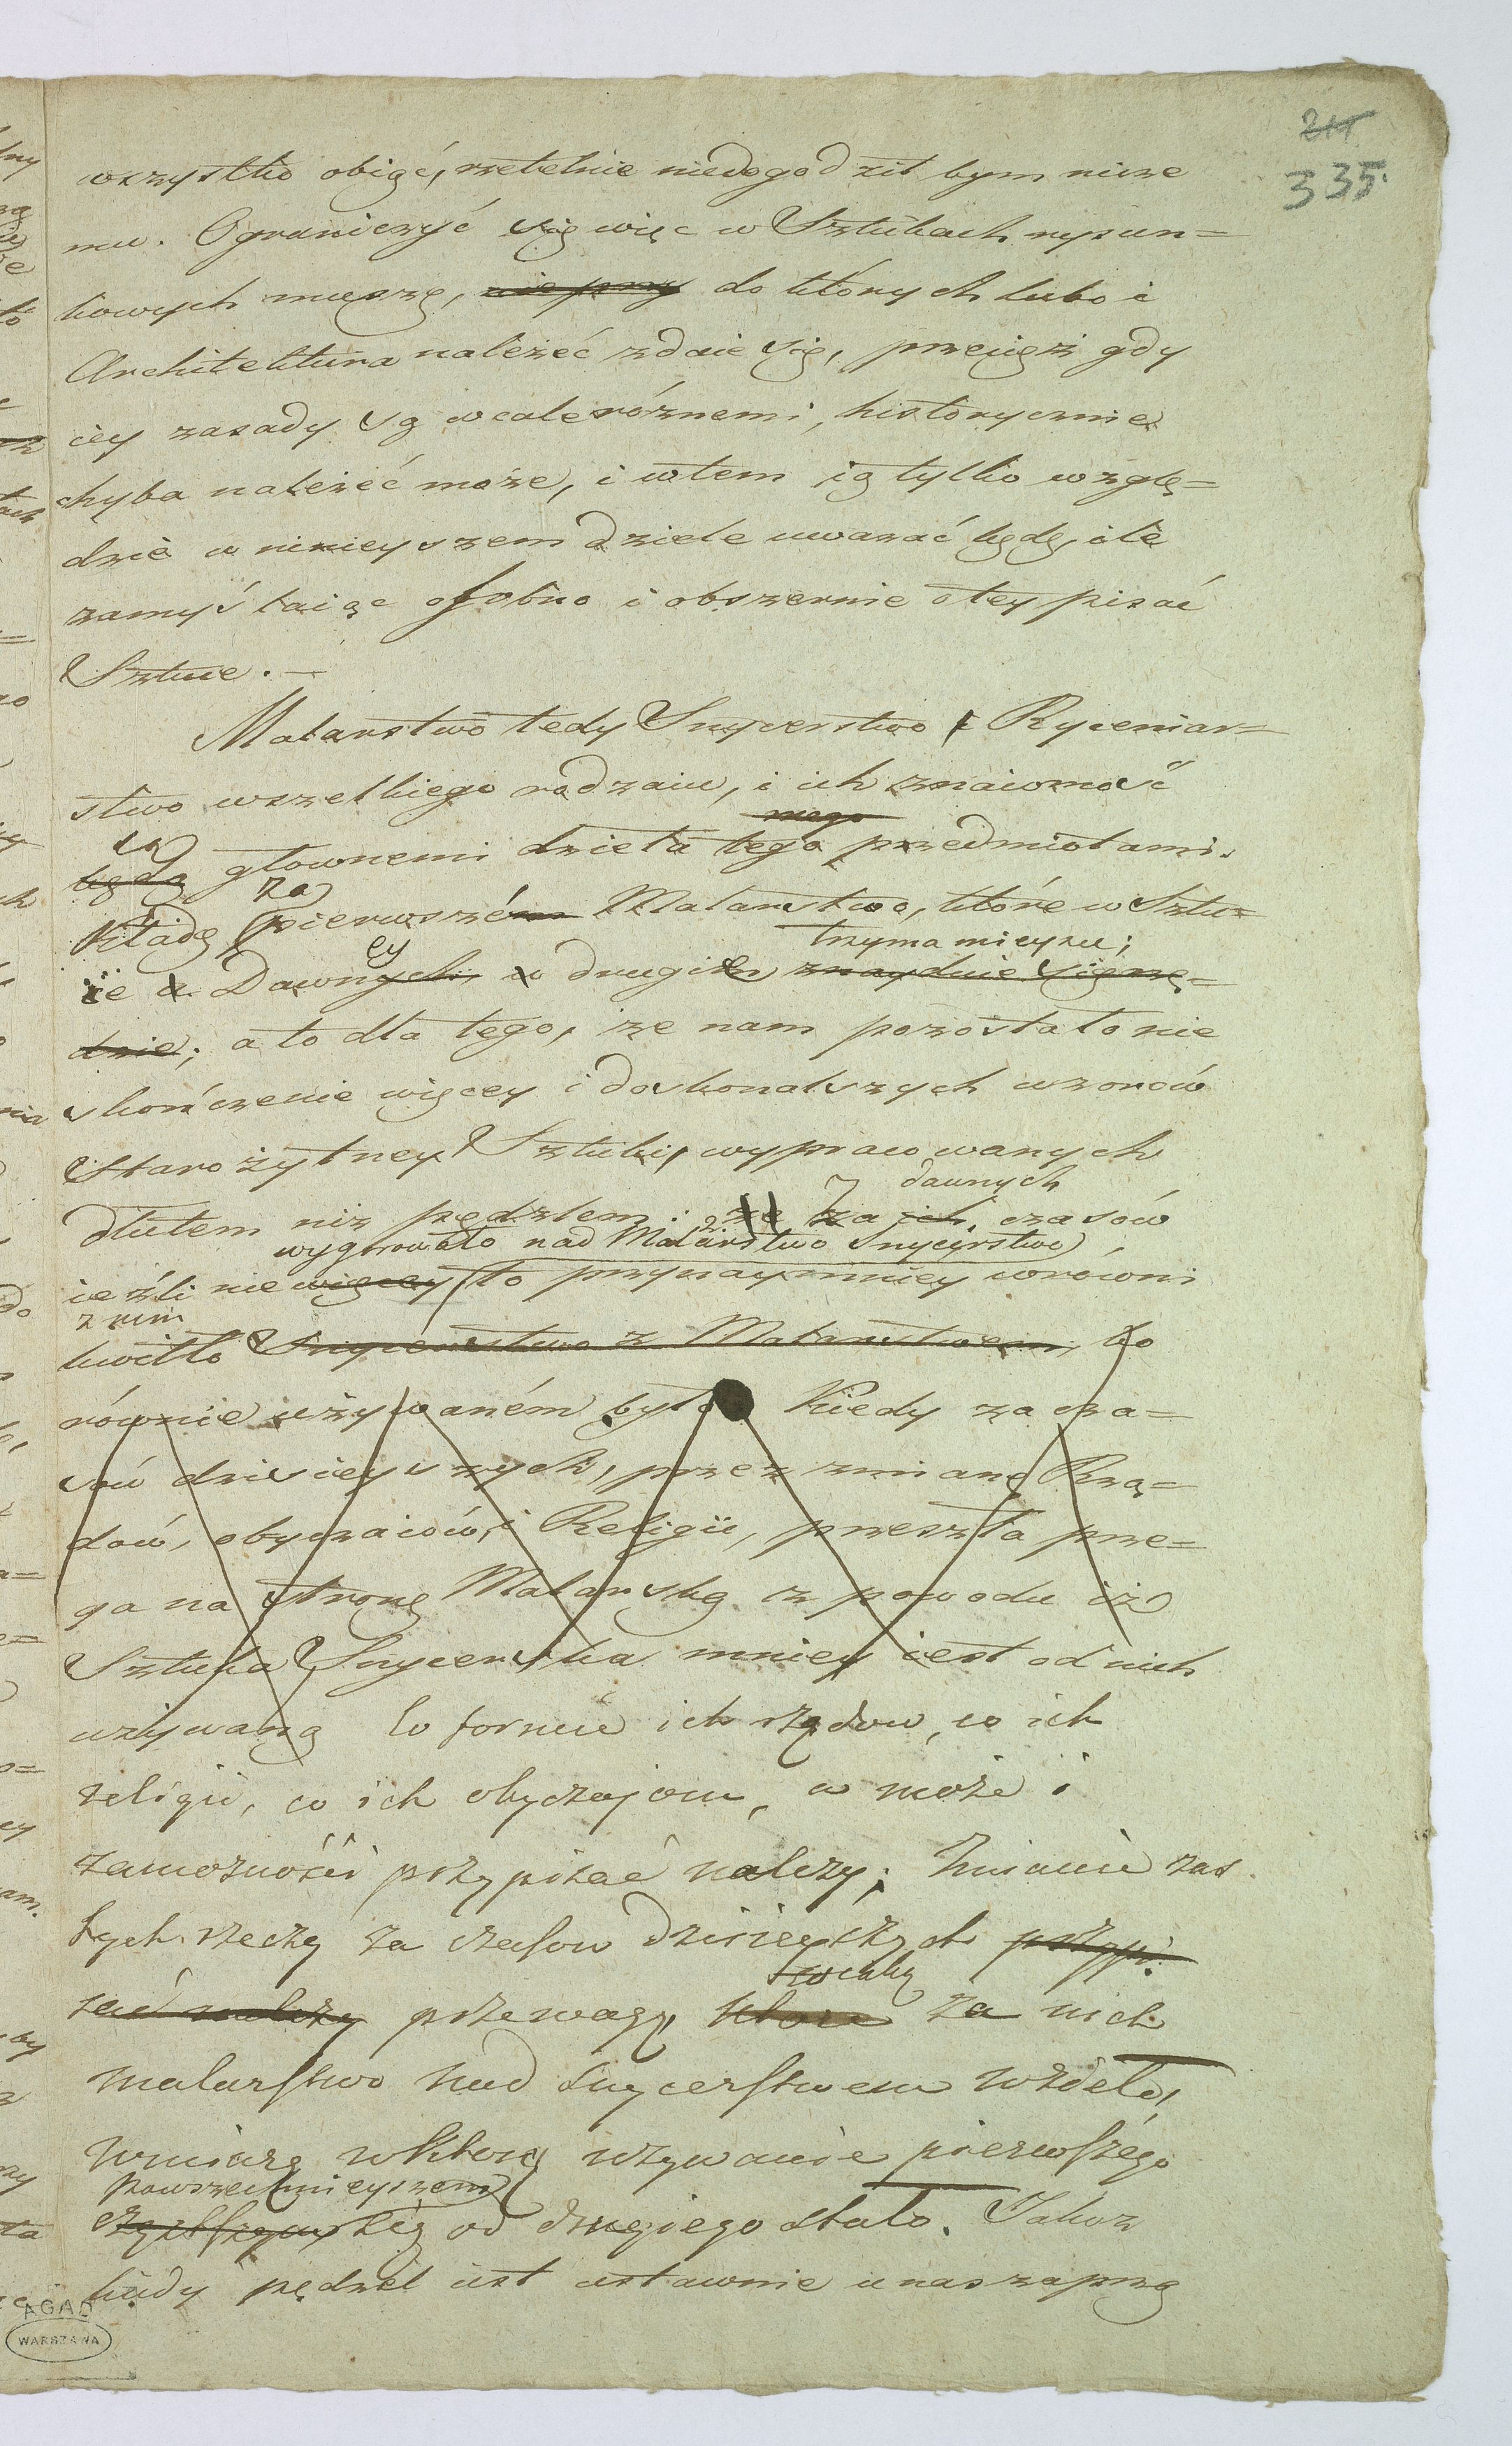 211
335.
wszystko obiąć, rzetelnie niedogodził bym nicze
mu. Ograniczyć się więc w Sztukach rysun=
kowych muszę, nie przy do których lubo i
Architektura należeć zdaie się, przecięż gdy
iey zasady są wcale różnemi, historycznie
chyba należeć może, i wtem ią tylko wzglę=
dzie w ninieyszem dziele uważać będę, ile
zamyślaiąc osobno i obszernie o tey pisać
Sztuce. —
Malarstwo tedy Snycerstwo i Ryceniar=
stwo wszelkiego rodzaiu, i ich znaiomość
mego
są
będą głownemi dzieła tego przedmiotami.
za
Kładę pierwszém Malarstwo, które w Sztu=
ey trzyma mieysce;
ce u Dawnych, w drugim znayduie się rzę=
dzie; a to dla tego, że nam pozostało nie
skończenie więcey i doskonalszych wzorów
Starożytney Sztuki, wypracowanych
dawnych
dłutem niż pędzlem: że za ich czasów
wygórowało nad Malarstwo Snycerstwo,
ieźli nie więcey to przynaymniey wrówni
z nim
kwitło Snycerstwo z Malarstwem, bo
równie używaném było. Kiedy za cza=
sów dzisieyszych, przez zmianę Rzą=
dów, obyczaiów, i Religii, przeszła prze=
ga na stronę Malarską z powodu iż
Sztuka Snycerska mniey iest od nich
używaną Co formie ich rządow, co ich
religii, co ich obyczajom, a może i
zamożności przypisać należy; Zmianie zaś
tych rzeczy za czasow dzisieyszych przypi
sać należy przewagę, które za nich
malarstwo nad snycerstwem wzieło,
wmiarę wktorą używanie pierwszégo
powszechnieyszem
częstszym się od drugiego stało. Jakoż
kiedy pędzel iest ustawnie u nas zaprzą
AGAD
WARSZAWA